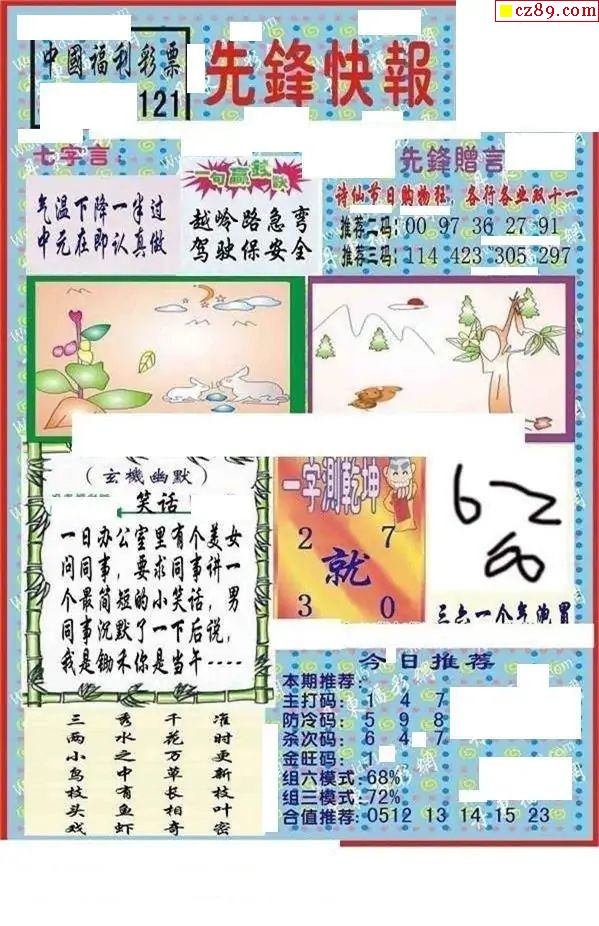 cz89.com
中國福利彩票
121
先鋒快報
七字言：
气温下降一半过
中元在即认真做
一句赢
越岭路急弯
驾驶保安全
先鋒贈言
诗仙节日购物狂，各行各业双十一
推荐二码：00 97 36 27 91
推荐三码：114 423 305 297
（玄機幽默）
笑话
一日办公室里有个美女
问同事，要求同事讲一
个最简短的小笑话，男
同事沉默了一下后说，
我是锄禾你是当午----
一字测乾坤
2 7
就
3 0
三六一个气泡冒
三两小鸟枝头戏
秀水之中有鱼虾
千花万草长相奇
准时更新枝叶密
今日推荐
本期推荐：
主打码：1 4 7
防冷码：5 9 8
杀次码：6 4 7
金旺码：1
组六模式：68%
组三模式：72%
合值推荐：0512 13 14 15 23